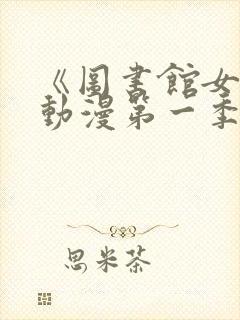 《圖書館女
動漫第一季
思米茶